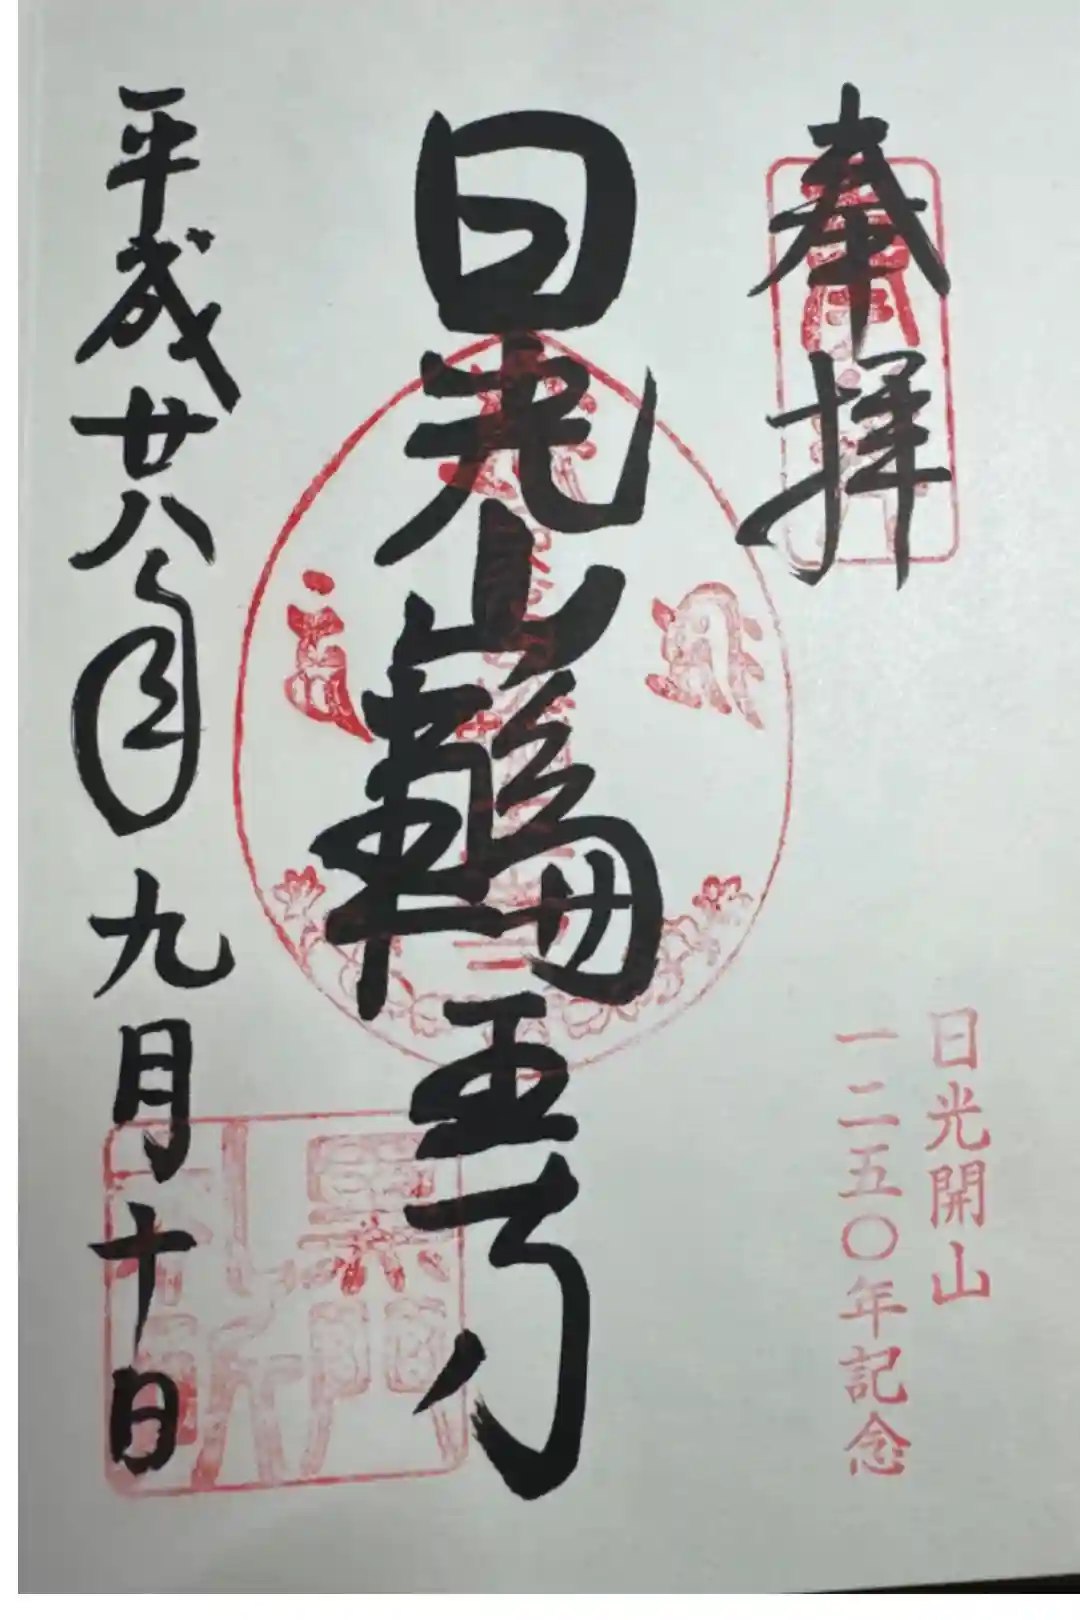 奉拝
日光開山
一二五〇年記念
日光山輪王寺
平成廿八年九月十日
黒門
札所